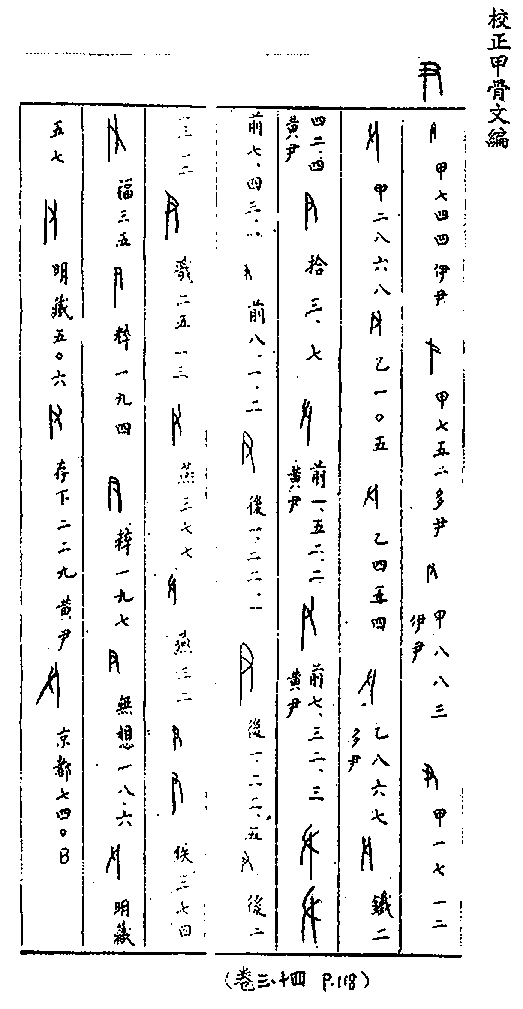 校正甲骨文編
尹
甲七四四 伊尹 甲七五二 多尹 甲八八三 伊尹 甲一七一二
甲二八六八 乙一〇五 乙四五四 乙八六七 多尹 鐵二
四二、四 黃尹 拾三、七 前一、五二、二 黃尹 前七、三二、三 黃尹
前七、四三、 前八、一、二 後 、二二、 後一、二二、五 後二
戩二五、一三 燕三七七 燕三二 佚三七四
福三五 粹一九四 粹一九七 無想一八六 明藏
五七 明藏五〇六 存下二二九 黃尹 京都七四〇B
(卷三、十四 P.118)